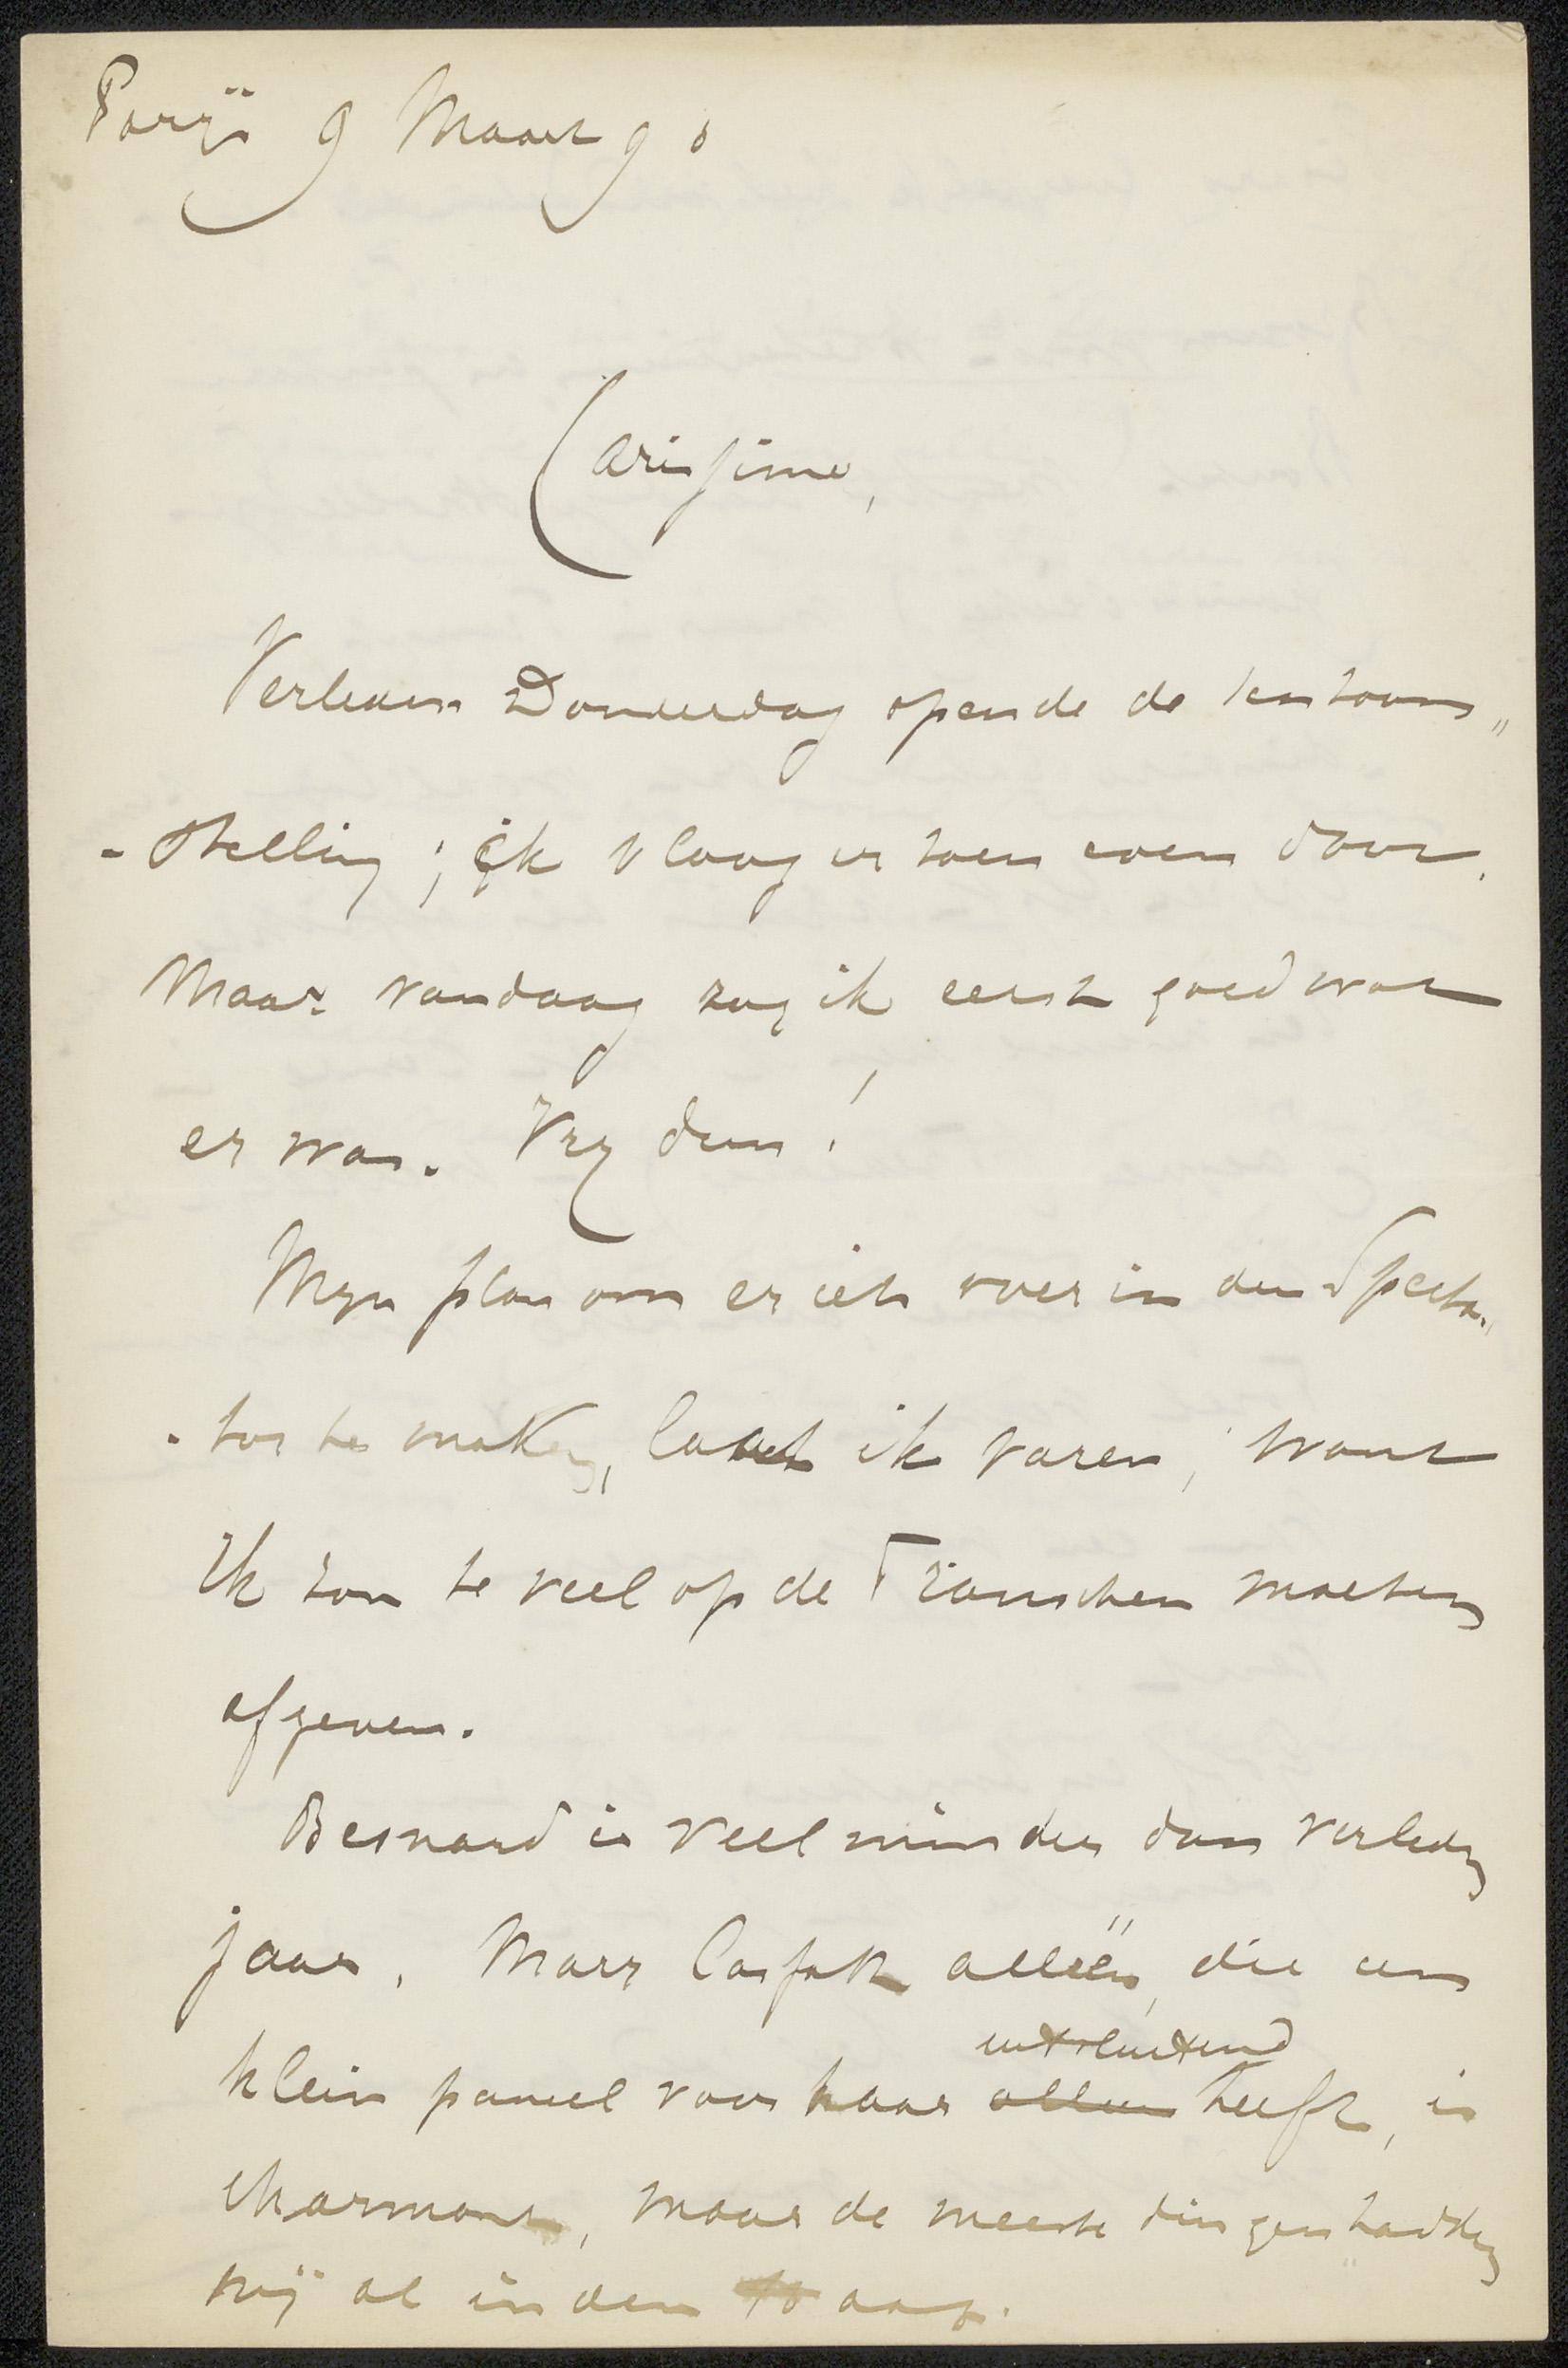 Parijs 9 Maart 90
Carissime,
Verleden Donderdag opende de tentoon„
-stelling; ik vloog er toen even door.
Maar vandaag zag ik eerst goed wat
er was. Vrij dun!
Mijn plan om er iets over in den Specta„
-tor te maken, laat ik varen, want
ik zou te veel op de Franschen moeten
afgeven.
Besnard is veel minder dan verleden
jaar. Mary Cassatt alléén, die een
klein paneel voor haar alleen uitsluitend heeft, is
charmant, maar de meeste dingen hadden
wij al in den Haag.